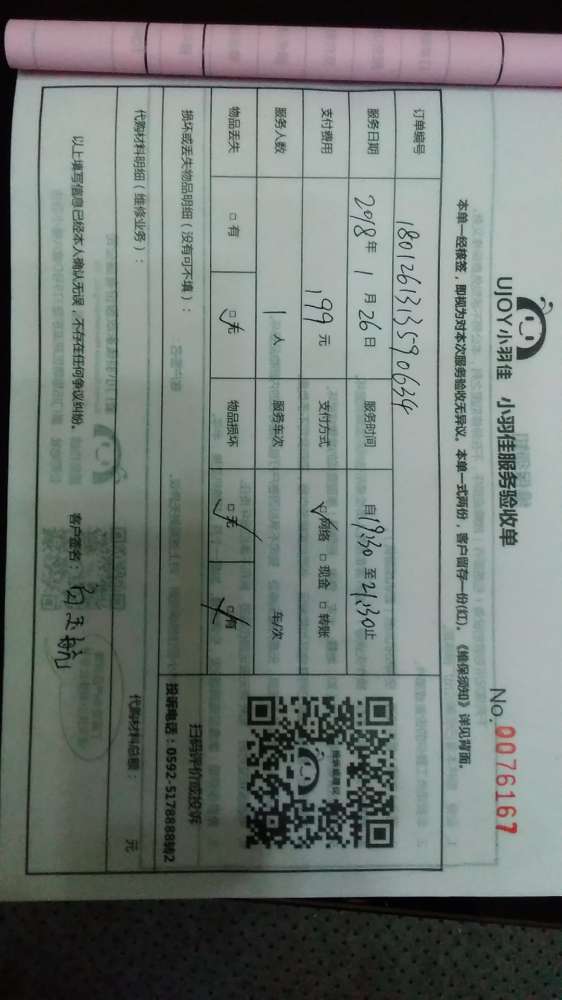 UJOY小羽佳 小羽佳服务验收单
No. 0076167
本单一经核签，即视为对本次服务验收无异议。本单一式两份，客户留存一份(红)。《维保须知》详见背面。
订单编号 1801261313590634
服务日期 2018年1月26日 服务时间 自19:30至21:30止
支付费用 199元 支付方式 ☑网络 □现金 □转账
服务人数 1人 服务车次 车/次
物品丢失 □有 ☑无 物品损坏 ☑无 □有
损坏或丢失物品明细（没有可不填）：
扫码评价或投诉
投诉电话：0592-5178888转2
代购材料明细（维修业务）：
代购材料总额： 元
以上填写信息已经本人确认无误，不存在任何争议纠纷。 客户签名：